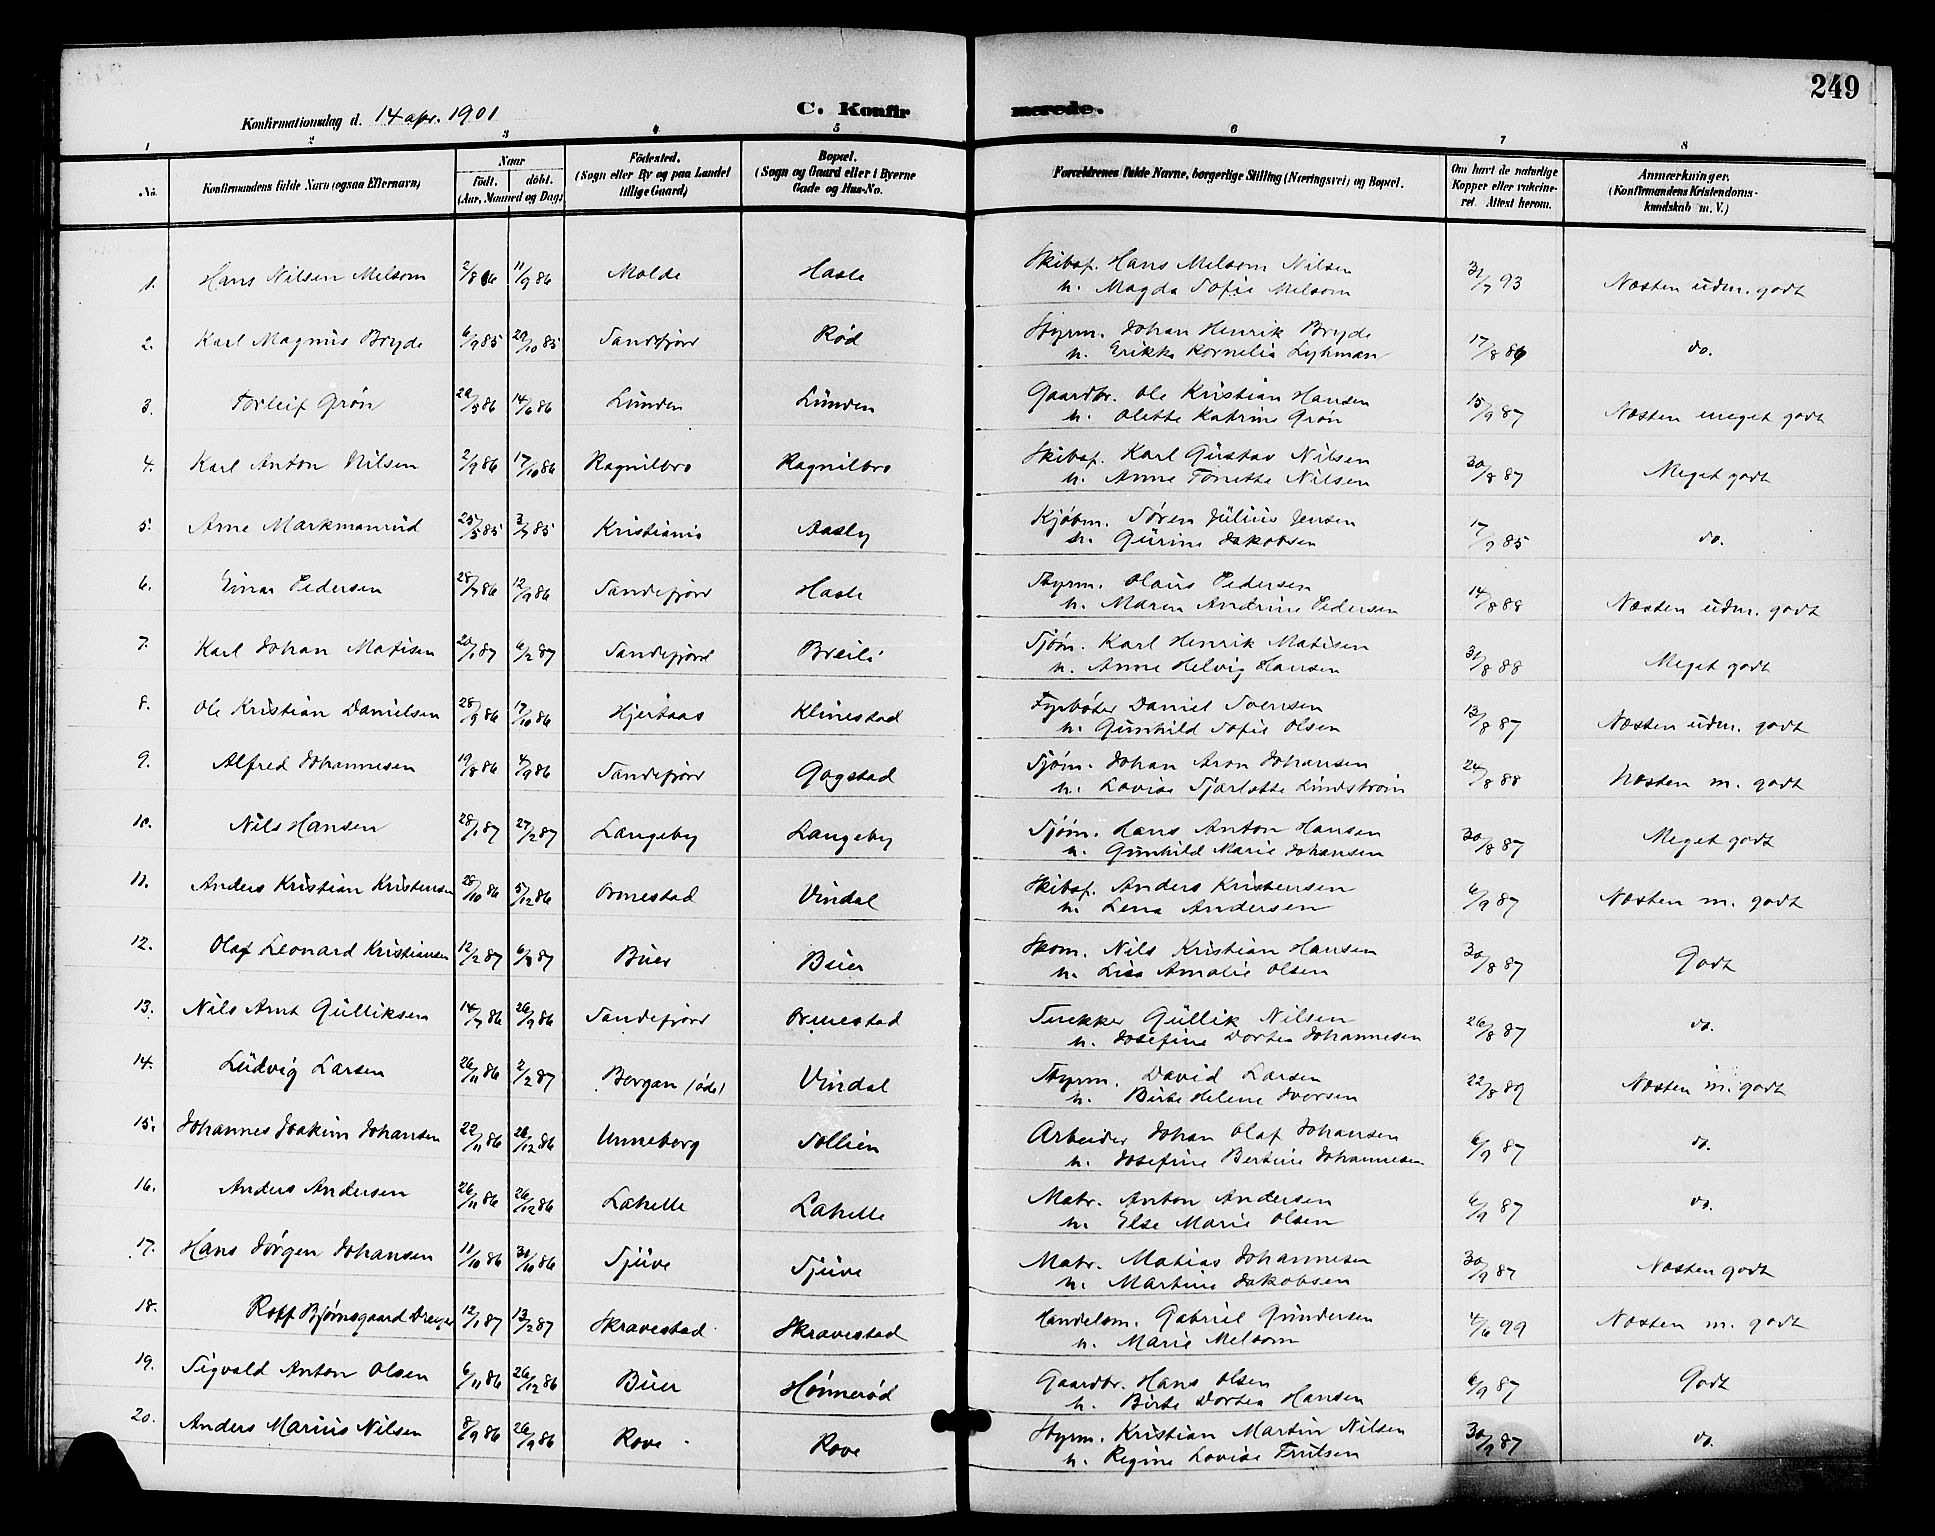 249
Konfirmationsdag d. 14 apr. 1901
C. Konfirmerede.
1 2 3 4 5 6 7 8
No. Konfirmandens fulde Navn (ogsaa Efternavn) Naar født. døbt. (Aar, Maaned og Dag) Fødested. (Sogn eller By og paa Landet tillige Gaard) Bopæl. (Sogn og Gaard eller i Byerne Gade og Hus-No. Forældrenes fulde Navne, borgerlige Stilling (Næringsvei) og Bopæl. Om havt de naturlige Kopper eller vakcineret. Attest herom. Anmærkninger. (Konfirmandens Kristendomskundskab m. V.)
1. Hans Nilsen Melsom 2/8 86 11/9 86 Molde Hasle Skibsf. Hans Melsom Nilsen 31/7 93 Næsten udm. godt
u. Magda Sofie Melsom
2. Karl Magnus Bryde 6/9 85 20/10 85 Sandefjord Rød Styrm. Johan Henrik Bryde 17/8 86 do.
u. Erikka Kornelia Lyhman
3. Torleif Grøn 22/5 86 14/6 86 Lunden Lunden Gaardbr. Ole Kristian Hansen 15/9 87 Næsten meget godt
u. Olette Katrine Grøn
4. Karl Anton Nilsen 2/9 86 17/10 86 Ragnilbro Ragnilbro Skibsf. Karl Gustav Nilsen 30/8 87 Meget godt
u. Anne Tonette Nilsen
5. Arne Markmanrud 25/5 85 3/7 85 Kristiania Aasly Kjøbm. Søren Julius Jensen 17/9 85 do.
u. Gurine Jakobsen
6. Einar Pedersen 28/7 86 12/9 86 Sandefjord Hasle Styrm. Olaus Pedersen 14/8 88 Næsten udm. godt
u. Maren Andrine Pedersen
7. Karl Johan Matisen 20/1 87 6/2 87 Sandefjord Breili Sjøm. Karl Henrik Matisen 31/8 88 Meget godt
u. Anne Helvig Hansen
8. Ole Kristian Danielsen 28/9 86 17/10 86 Hjertaas Klinestad Fyrbøter Daniel Svensen 13/8 87 Næsten udm. godt
u. Gunhild Sofie Olsen
9. Alfred Johannesen 19/8 86 4/9 86 Sandefjord Gogstad Sjøm. Johan Aron Johansen 24/8 88 Næsten m. godt
u. Lovise Sjarlotte Lindstrøm
10. Nils Hansen 28/1 87 27/2 87 Langeby Langeby Sjøm. Hans Anton Hansen 30/8 87 Meget godt
u. Gunhild Marie Johansen
11. Anders Kristian Kristensen 28/10 86 5/12 86 Ormestad Vindal Skibsf. Anders Kristensen 6/9 87 Næsten m. godt
u. Lena Andersen
12. Olaf Leonard Kristiansen 12/2 87 6/3 87 Buer Buer Skom. Nils Kristian Hansen 30/8 87 Godt
u. Lisa Amalie Olsen
13. Nils Arnt Gulliksen 14/7 86 26/9 86 Sandefjord Ormestad Snekker Gullik Nilsen 26/8 87 do.
u. Josefine Dortea Johannesen
14. Ludvig Larsen 26/11 86 2/2 87 Bergan (øde) Vindal Styrm. David Larsen 22/8 89 Næsten m. godt
u. Birte Helene Iversen
15. Johannes Joakim Johansen 22/11 86 26/12 86 Unneberg Sollien Arbeider Johan Olaf Johansen 6/9 87 do.
u. Josefine Bertine Johannesen
16. Anders Andersen 26/11 86 26/12 86 Lahelle Lahelle Matr. Anton Andersen 6/9 87 do.
u. Else Marie Olsen
17. Hans Jørgen Johansen 11/10 86 31/10 86 Sjuve Sjuve Matr. Matias Johannesen 30/9 87 Næsten godt
u. Martine Jakobsen
18. Rolf Bjørnsgaard Dreyer 12/1 87 13/2 87 Skravestad Skravestad Handelsm. Gabriel Gundersen 4/6 99 Næsten m. godt
u. Marie Melsom
19. Sigvald Anton Olsen 6/11 86 26/12 86 Buer Hønnerød Gaardbr. Hans Olsen 6/9 87 Godt
u. Birte Dortea Hansen
20. Anders Marius Nilsen 8/9 86 26/9 86 Rove Rove Styrm. Kristian Martin Nilsen 30/9 87 do.
u. Regine Lovise Trulsen